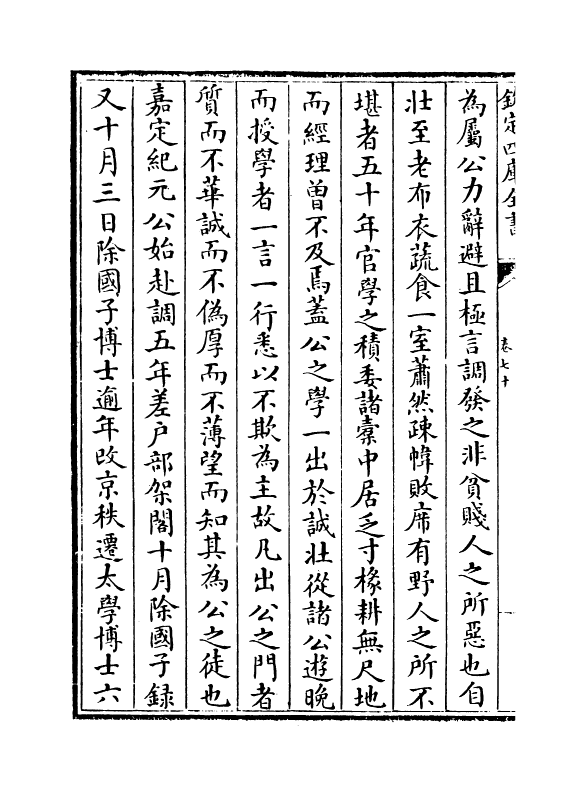 欽定四庫全書
卷七十
為屬公力辭避且極言調發之非貧賤人之所惡也自
壯至老布衣蔬食一室蕭然疎幃敗席有野人之所不
堪者五十年官學之積委諸橐中居乏寸椽耕無尺地
而經理曽不及焉蓋公之學一出於誠壯從諸公遊晚
而授學者一言一行悉以不欺為主故凡出公之門者
質而不華誠而不偽厚而不薄望而知其為公之徒也
嘉定紀元公始赴調五年差户部架閣十月除國子録
又十月三日除國子博士逾年改京秩遷太學博士六